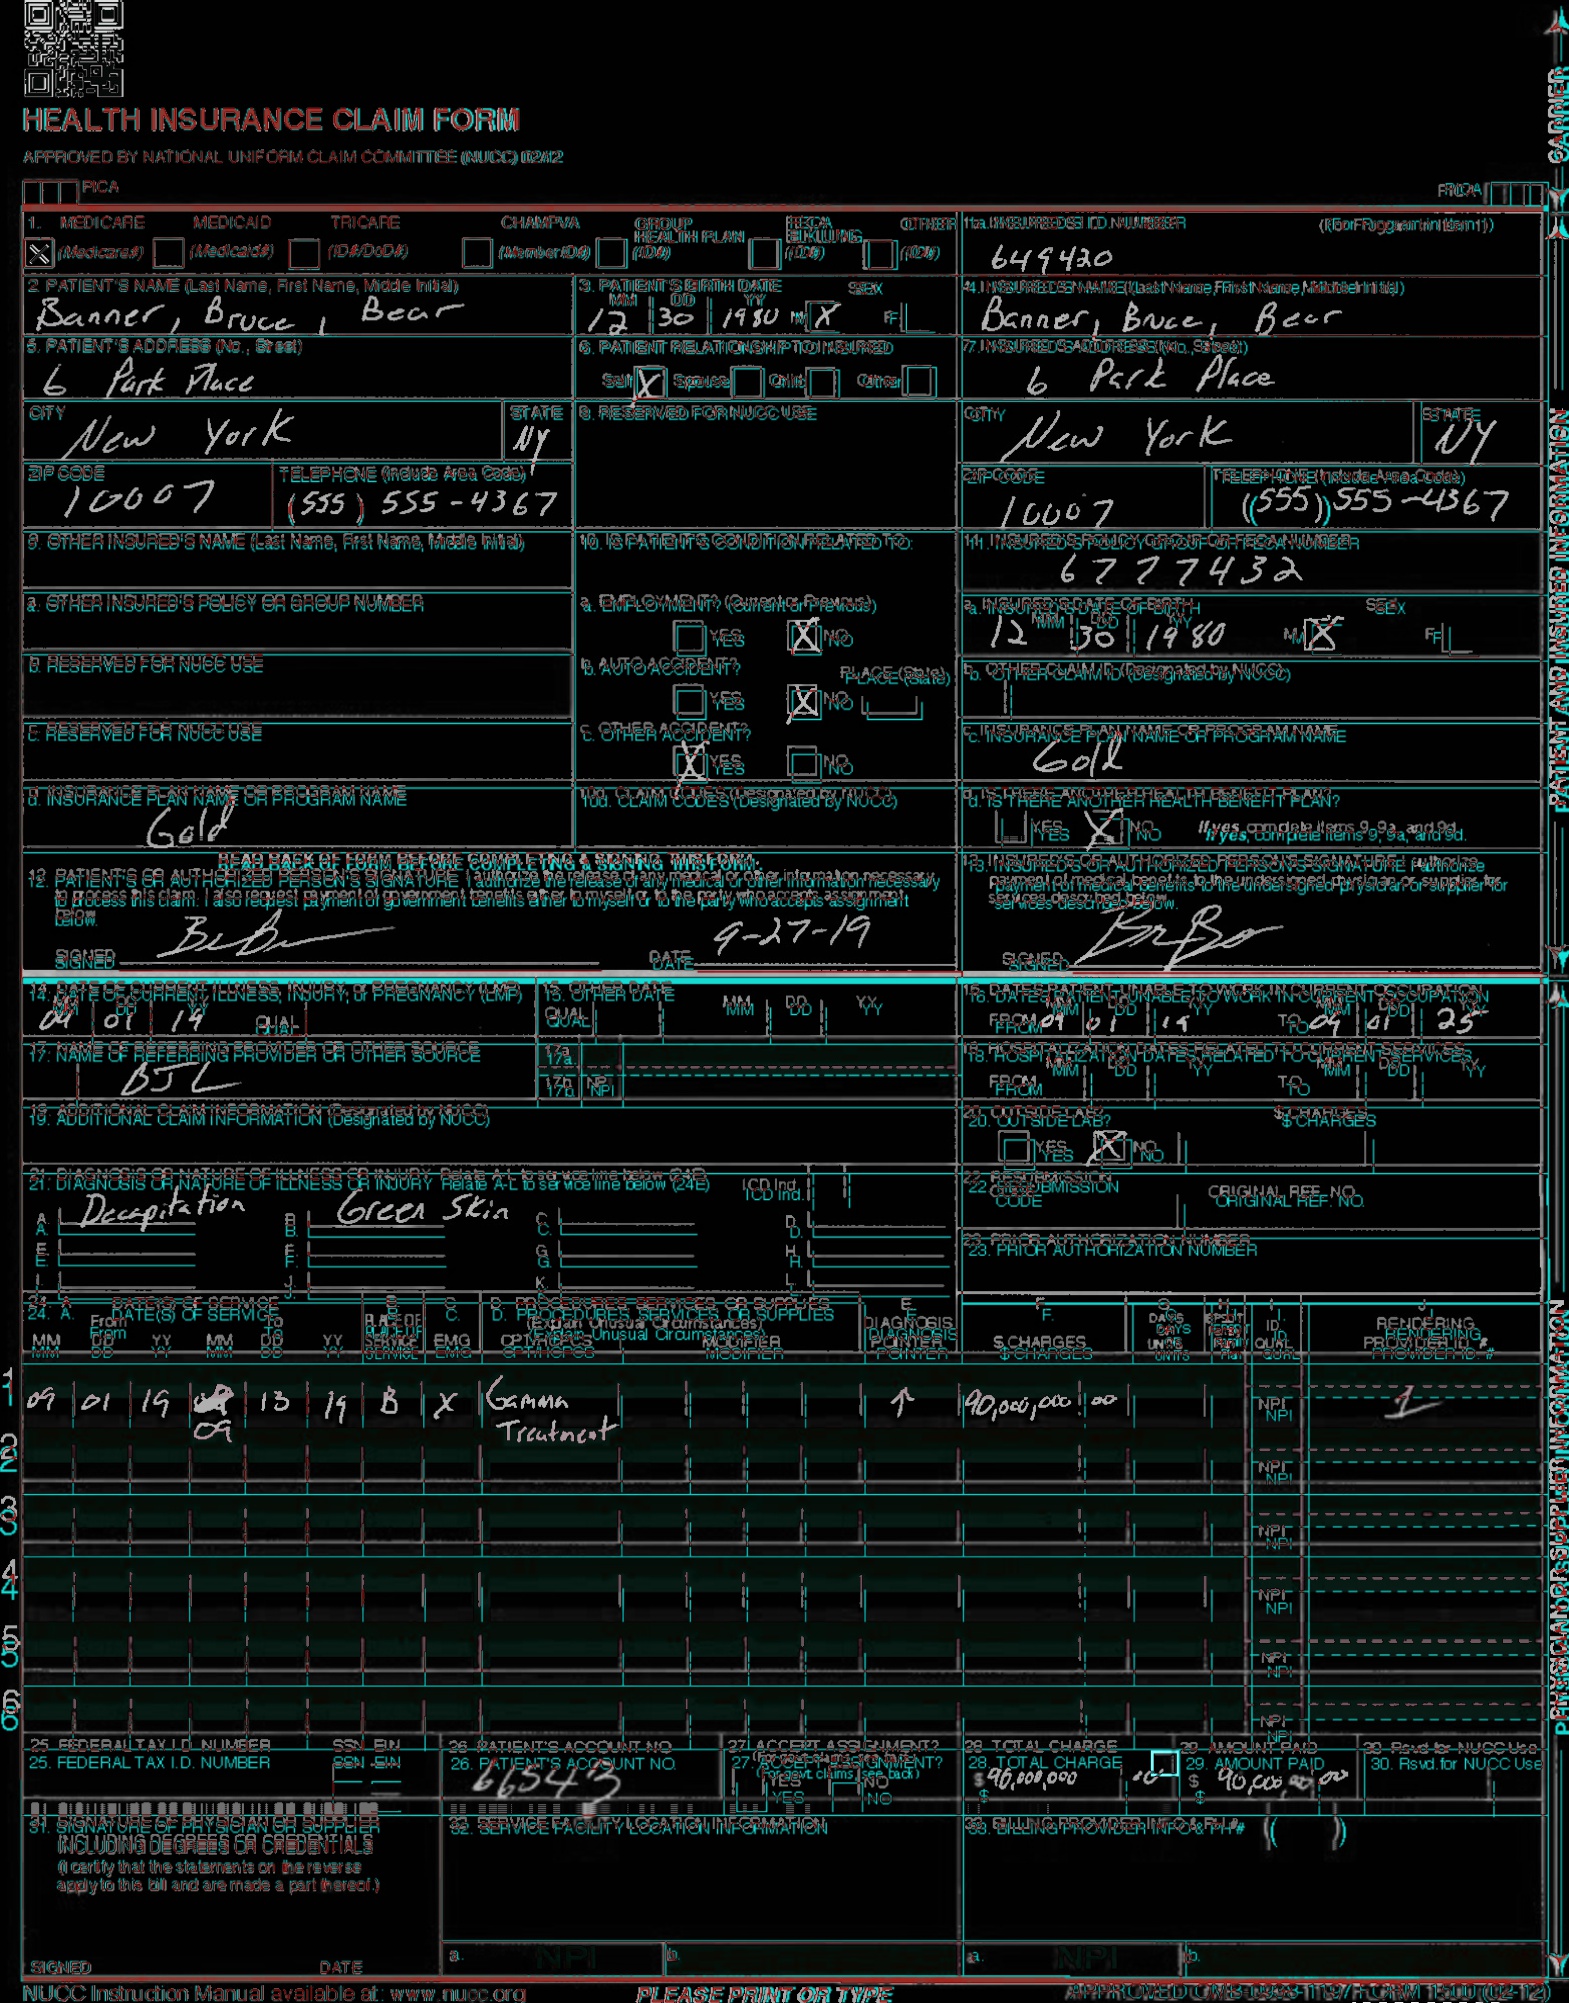 HEALTH INSURANCE CLAIM FORM
APPROVED BY NATIONAL UNIFORM CLAIM COMMITTEE (NUCC) 02/12
PICA PICA
1. MEDICARE MEDICAID TRICARE CHAMPVA GROUP HEALTH PLAN FECA BLK LUNG OTHER
X (Medicare#) (Medicaid#) (ID#/DoD#) (Member ID#) (ID#) (ID#) (ID#)
1a. INSURED'S I.D. NUMBER (For Program in Item 1)
649420
2. PATIENT'S NAME (Last Name, First Name, Middle Initial)
Banner, Bruce, Bear
3. PATIENT'S BIRTH DATE SEX
MM DD YY
12 30 1980 M X F
4. INSURED'S NAME (Last Name, First Name, Middle Initial)
Banner, Bruce, Bear
5. PATIENT'S ADDRESS (No., Street)
6 Park Place
6. PATIENT RELATIONSHIP TO INSURED
Self X Spouse Child Other
7. INSURED'S ADDRESS (No., Street)
6 Park Place
CITY STATE
New York NY
8. RESERVED FOR NUCC USE
CITY STATE
New York NY
ZIP CODE TELEPHONE (Include Area Code)
10007 (555) 555-4367
ZIP CODE TELEPHONE (Include Area Code)
10007 (555) 555-4367
9. OTHER INSURED'S NAME (Last Name, First Name, Middle Initial)
10. IS PATIENT'S CONDITION RELATED TO:
11. INSURED'S POLICY GROUP OR FECA NUMBER
6777432
a. OTHER INSURED'S POLICY OR GROUP NUMBER
a. EMPLOYMENT? (Current or Previous)
YES X NO
a. INSURED'S DATE OF BIRTH SEX
MM DD YY
12 30 1980 M X F
b. RESERVED FOR NUCC USE
b. AUTO ACCIDENT? PLACE (State)
YES X NO
b. OTHER CLAIM ID (Designated by NUCC)
c. RESERVED FOR NUCC USE
c. OTHER ACCIDENT?
X YES NO
c. INSURANCE PLAN NAME OR PROGRAM NAME
Gold
d. INSURANCE PLAN NAME OR PROGRAM NAME
Gold
10d. CLAIM CODES (Designated by NUCC)
d. IS THERE ANOTHER HEALTH BENEFIT PLAN?
YES X NO If yes, complete items 9, 9a, and 9d.
READ BACK OF FORM BEFORE COMPLETING & SIGNING THIS FORM.
12. PATIENT'S OR AUTHORIZED PERSON'S SIGNATURE I authorize the release of any medical or other information necessary
to process this claim. I also request payment of government benefits either to myself or to the party who accepts assignment
below.
SIGNED DATE 9-27-19
13. INSURED'S OR AUTHORIZED PERSON'S SIGNATURE I authorize
payment of medical benefits to the undersigned physician or supplier for
services described below.
SIGNED
14. DATE OF CURRENT ILLNESS, INJURY, or PREGNANCY (LMP)
MM DD YY
09 01 19 QUAL.
15. OTHER DATE
QUAL. MM DD YY
16. DATES PATIENT UNABLE TO WORK IN CURRENT OCCUPATION
MM DD YY MM DD YY
FROM 09 01 19 TO 09 01 25
17. NAME OF REFERRING PROVIDER OR OTHER SOURCE
BJL
17a.
17b. NPI
18. HOSPITALIZATION DATES RELATED TO CURRENT SERVICES
MM DD YY MM DD YY
FROM TO
19. ADDITIONAL CLAIM INFORMATION (Designated by NUCC)
20. OUTSIDE LAB? $ CHARGES
YES X NO
21. DIAGNOSIS OR NATURE OF ILLNESS OR INJURY Relate A-L to service line below (24E) ICD Ind.
A. Decapitation B. Green Skin C. D.
E. F. G. H.
I. J. K. L.
22. RESUBMISSION CODE ORIGINAL REF. NO.
23. PRIOR AUTHORIZATION NUMBER
24. A. DATE(S) OF SERVICE
From To
MM DD YY MM DD YY
B. PLACE OF SERVICE
C. EMG
D. PROCEDURES, SERVICES, OR SUPPLIES
(Explain Unusual Circumstances)
CPT/HCPCS MODIFIER
E. DIAGNOSIS POINTER
F. $ CHARGES
G. DAYS OR UNITS
H. EPSDT
I. ID. QUAL.
J. RENDERING PROVIDER ID. #
1 09 01 19 09 13 19 B X Gamma Treatment ↑ 90,000,000 00 NPI 1
2 NPI
3 NPI
4 NPI
5 NPI
6 NPI
25. FEDERAL TAX I.D. NUMBER SSN EIN
26. PATIENT'S ACCOUNT NO.
66543
27. ACCEPT ASSIGNMENT?
(For govt. claims, see back)
YES NO
28. TOTAL CHARGE
$ 90,000,000 00
29. AMOUNT PAID
$ 90,000,000 00
30. Rsvd. for NUCC Use
31. SIGNATURE OF PHYSICIAN OR SUPPLIER
INCLUDING DEGREES OR CREDENTIALS
(I certify that the statements on the reverse
apply to this bill and are made a part thereof.)
SIGNED DATE
32. SERVICE FACILITY LOCATION INFORMATION
a. NPI b.
33. BILLING PROVIDER INFO & PH # ( )
a. NPI b.
NUCC Instruction Manual available at: www.nucc.org PLEASE PRINT OR TYPE APPROVED OMB-0938-1197 FORM 1500 (02-12)
CARRIER
PATIENT AND INSURED INFORMATION
PHYSICIAN OR SUPPLIER INFORMATION